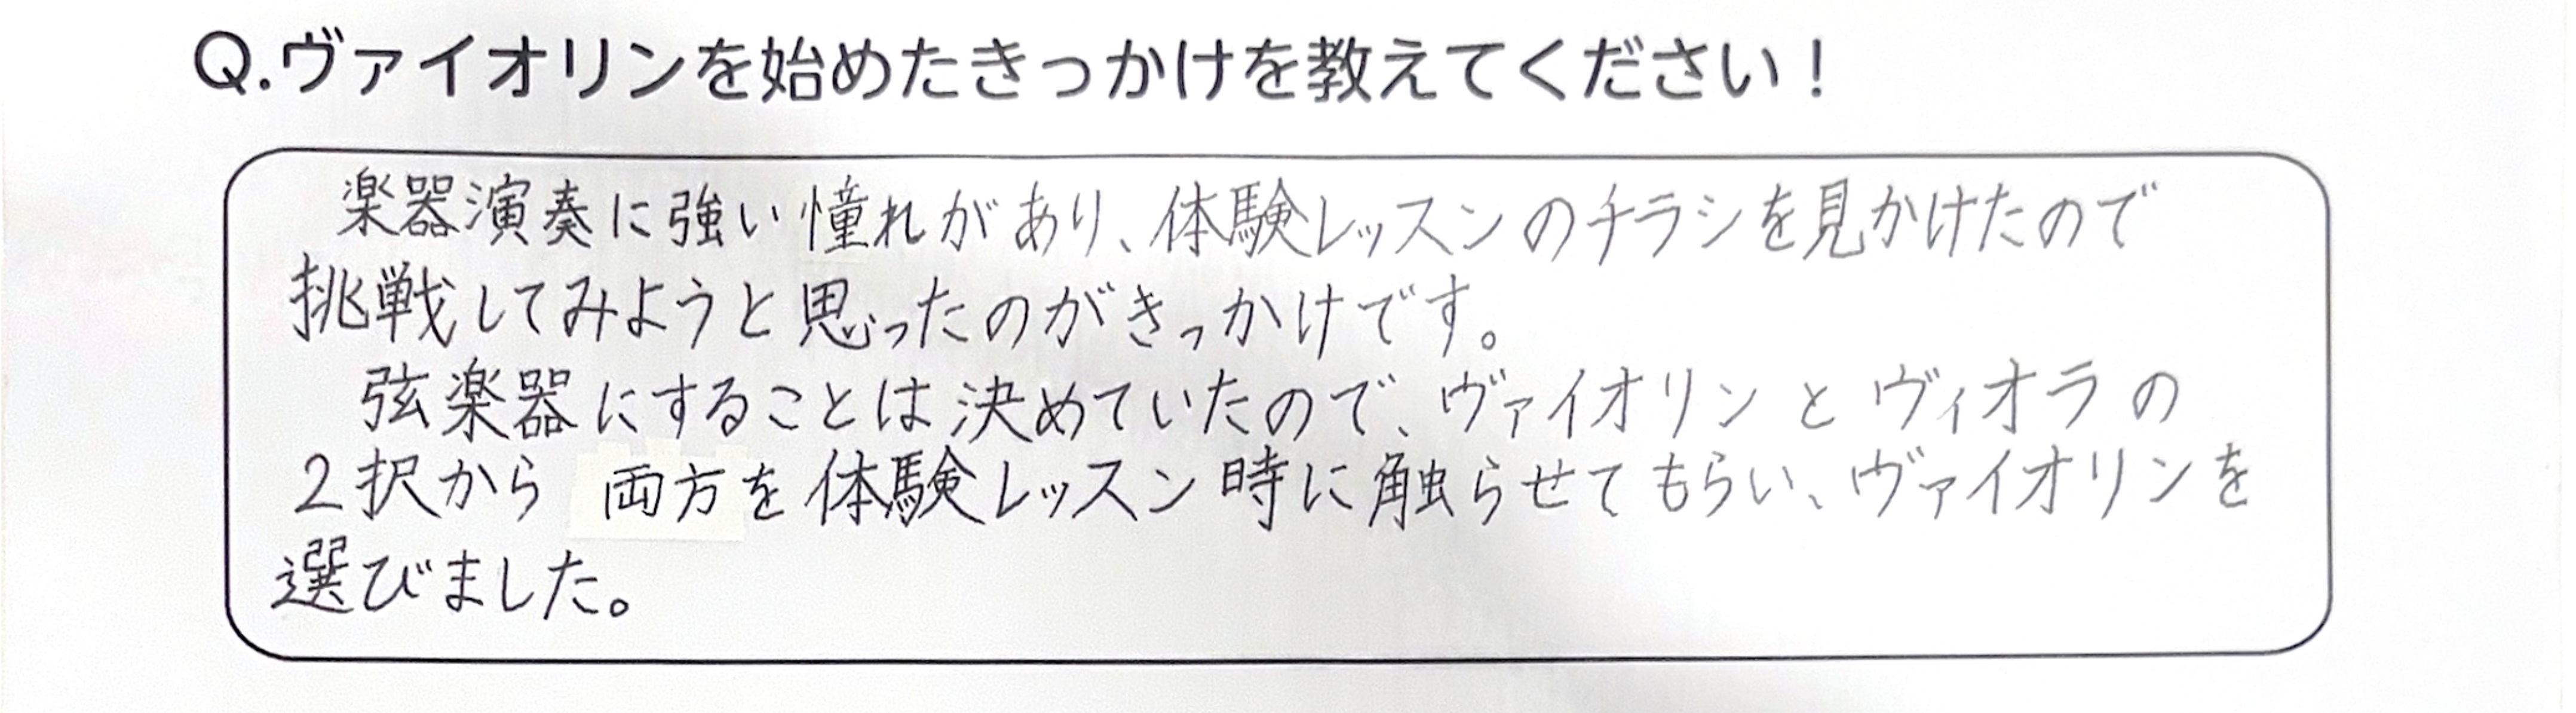 Q.ヴァイオリンを始めたきっかけを教えてください！
楽器演奏に強い憧れがあり、体験レッスンのチラシを見かけたので
挑戦してみようと思ったのがきっかけです。
弦楽器にすることは決めていたので、ヴァイオリンとヴィオラの
2択から両方を体験レッスン時に触らせてもらい、ヴァイオリンを
選びました。